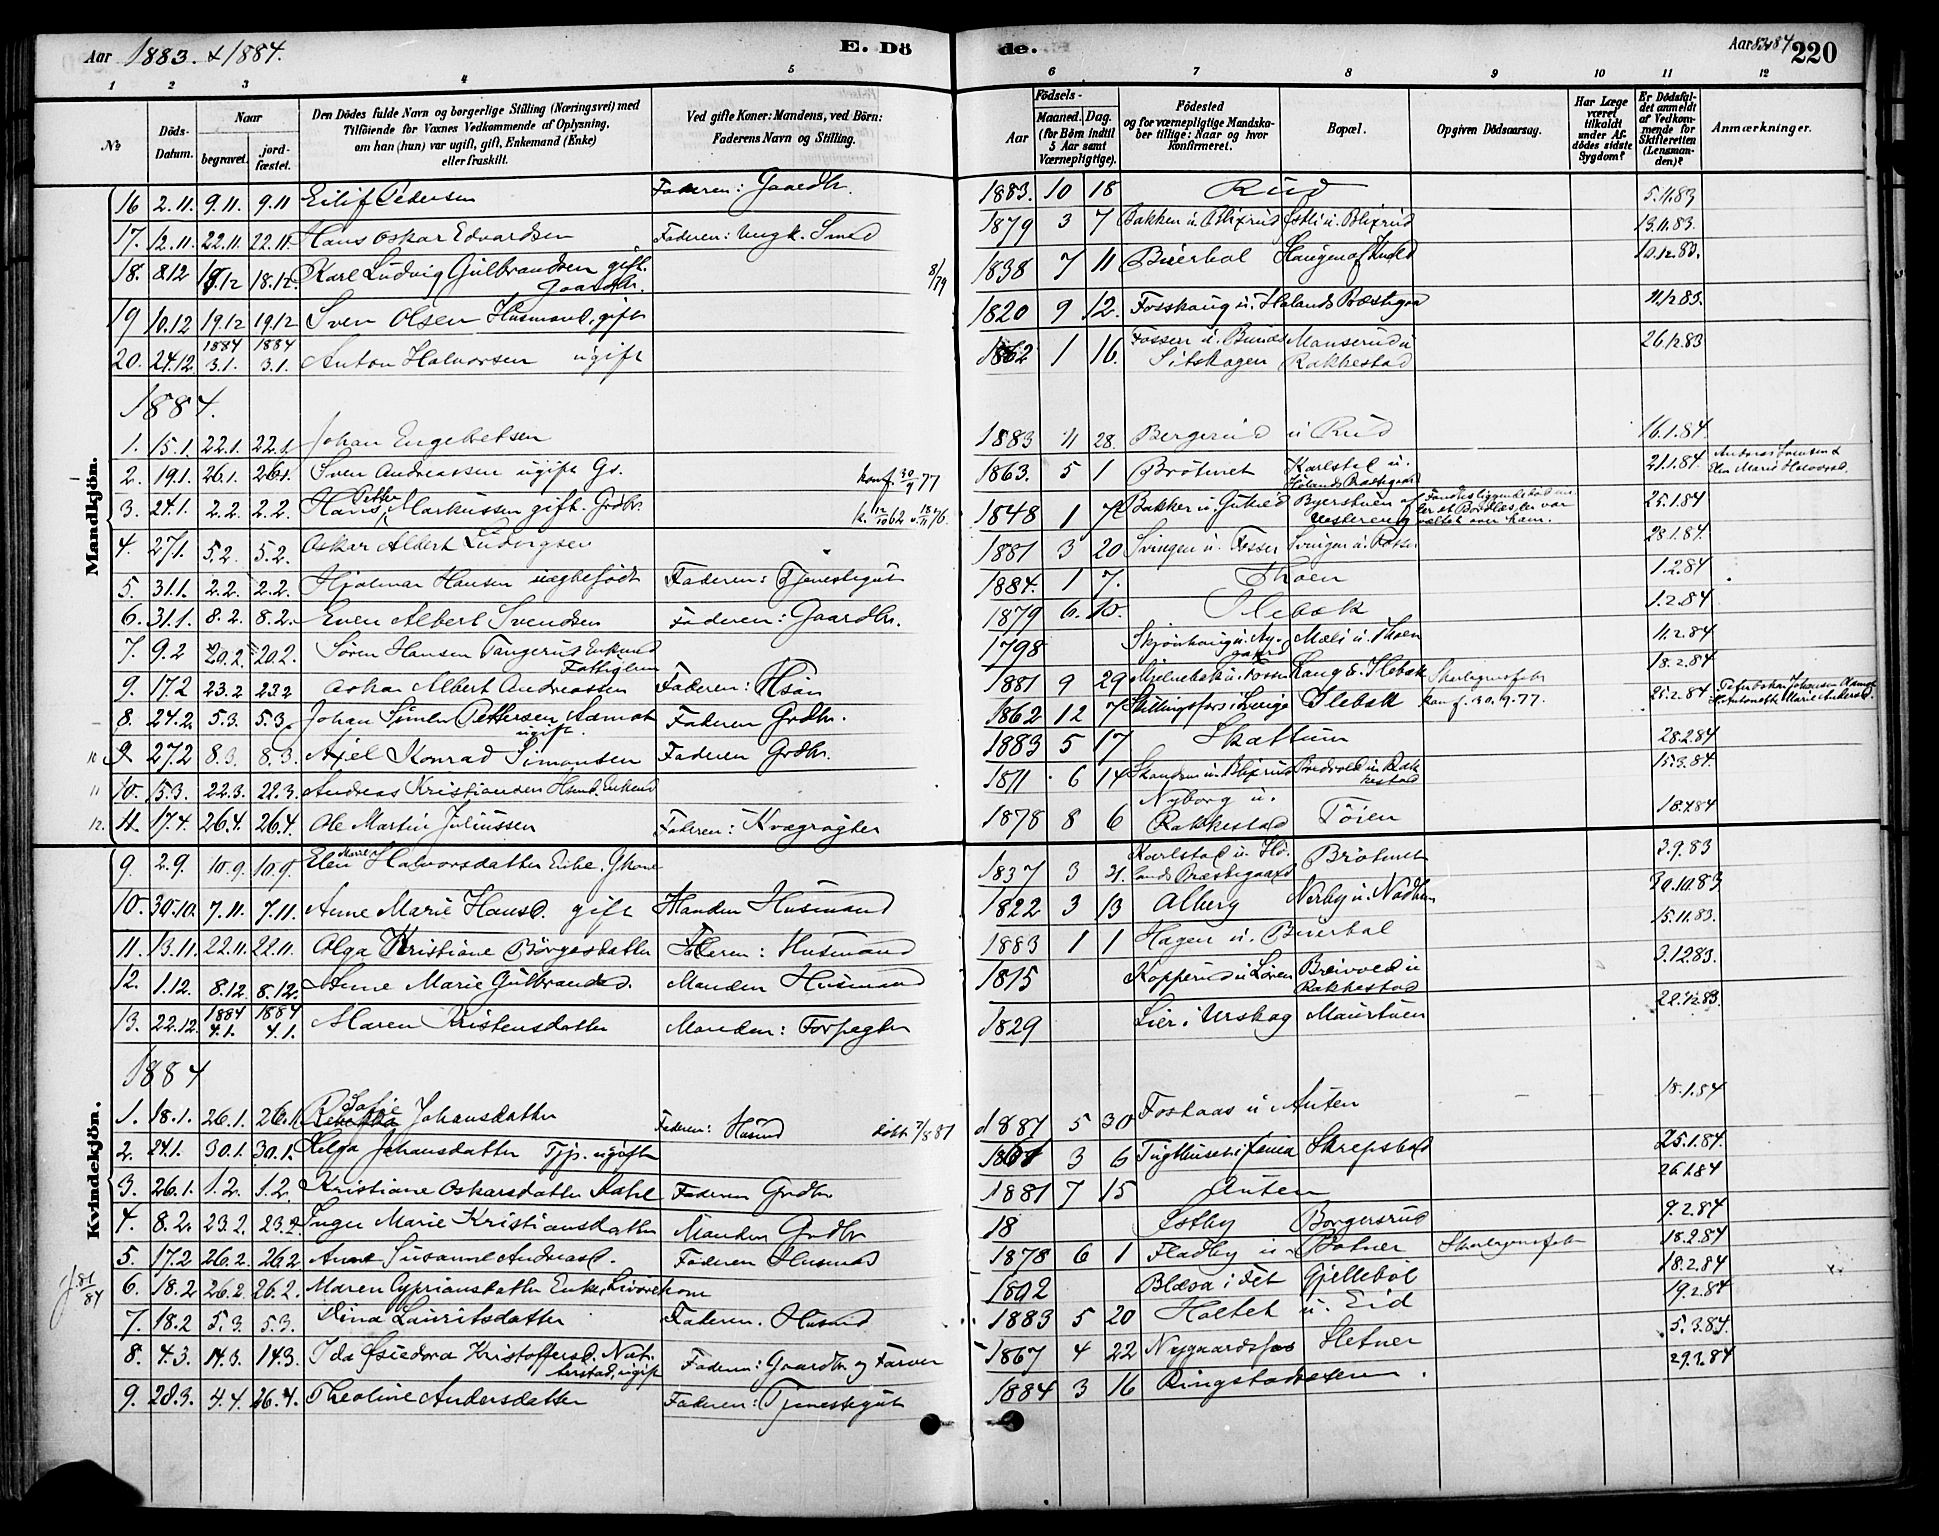 Aar 1883 & 1884.
E. Dö
de.
Aar 83 84 220
1 2 3 4 5
6 7 8 9 10 11 12
No
Döds-Datum.
Naar
begravet. jord-fæstet.
Den Dödes fulde Navn og borgerlige Stilling (Næringsvei) med
Tilföiende for Voxnes Vedkommende af Oplysning,
om han (hun) var ugift, gift, Enkemand (Enke)
eller fraskilt.
Ved gifte Koner: Mandens, ved Börn:
Faderens Navn og Stilling.
Födsels-
Aar
Maaned. Dag.
(for Börn indtil
5 Aar samt
Værnepligtige).
Födested
og for værnepligtige Mandska-
ber tillige: Naar og hvor
konfirmeret.
Bopæl.
Opgiven Dödsaarsag.
Har Læge
været
tilkaldt
under Af-
dödes sidste
Sygdom?
Er Dödsfal-
det anmeldt
af Vedkom-
mende for
Skifteretten
(Lensman-
den)?
Anmærkninger.
Mandkjön.
16 2.11. 9.11. 9.11 Eilif Pedersen Faderen: Gaardbr. 1883. 10 18 Rud 5.11.83
17. 12.11. 22.11. 22.11. Hans Oskar Edvardsen Faderen: Ungk. Smed 1879 3 7 Bakken u. Blixrud Østli u. Blixrud 13.11.83.
18. 8.12 18.12 18.12. Karl Ludvig Gulbrandsen gift. Gaardbr. 8/79 1838 7 11 Buerhol Haugen af 10.12.83.
19 10.12 19.12 19.12 Sven Olsen Husmand, gift 1820 9 12. Fosshaug u. Hølands Præstegaa 11.12.83.
20. 24.12. 1884 3.1. 1884 3.1. Anton Halvorsen ugift 1862 1 16. Fossen u. Bunæs Sitskogen Manserud u Rakkestad 26.12.83
1884.
1. 15.1. 22.1. 22.1. Johan Engebretsen 1883 11 28. Bergerud u Rud 16.1.84.
2. 19.1. 26.1. 26.1. Sven Andreassen ugift Gs. konf. 30/9 77 1863. 5 1 Brötmet Karlstad u. Hølands Præstegaard 21.1.84. Andreas Svensen & Elen Marie Halvorsd.
3. 24.1. 2.2. 2.2. Hans Petter Markussen gift. Grdbr. 1848 1 7 Bakker u. Bjerstuen af 25.1.84
4. 27.1. 5.2. 5.2. Oskar Albert Ludvigsen 1881 3 20 Svingen u. Fosser Svingen u. Fosser 28.1.84.
5. 31.1. 2.2. 2.2. Hjalmar Hansen uægtefödt Faderen: Tjenestegut 1884. 1 7. Thoen 1.2.84
6. 31.1. 8.2. 8.2. Even Albert Svendsen Faderen: Gaardbr. 1879 6. 10. Ilebæk 1.2.84
7. 9.2 20.2. 20.2. Søren Hansen Tangerus Enkmd Fattiglem 1798 Skjönhaug u. Ny-gaard Mæli u. Thoen 11.2.84
9. 17.2 23.2 23.2 Oskar Albert Andreassen Faderen: Hsm 1881 9 29 Mjelnebak u. Fosser Haug & Ilebæk Skarlagensfeber 18.2.84
8. 24.2. 5.3. 5.3. Johan Simen Pettersen Aamot ugift. Faderen Grdbr. 1862 12 7 Skillingsfors i Sverige Ilebæk kon f. 30.9.77. 25.2.84
10 9. 27.2 8.3. 8.3. Axel Konrad Simonsen Faderen Grdbr. 1883 5 17 Skattum 28.2.84
11 10. 15.3. 22.3. 22.3. Andreas Kristiansen Hsmd. Enkemd 1811 6 14 u. Blixrud Bredvold u. Rak-kestad 15.3.84.
12. 11. 17.4. 26.4. 26.4. Ole Martin Juliussen Faderen: Kvægrögter 1878 8 6 Nyborg u. Rakkestad Töien 18.4.84
Kvindekjön.
9. 2.9. 10.9. 10.9. Elen Marie Halvorsdatter Enke. Gkone 1837 3 21. Karlstad u. Hö-lands Præstegaard Brötmet 3.9.83
10. 30.10. 7.11. 7.11. Anne Marie Hansd. gift Manden Husmand 1822 3 13 Alberg Nerby u. Nadhen 30.10.83
11. 13.11. 22.11. 22.11. Olga Kristiane Börgesdatter Faderen: Husmand 1883 1 1 Hagen u. Buerhol 15.11.83.
12. 1.12. 8.12. 8.12. Anne Marie Gulbrandsd. Manden Husmand 1815 Kopperud u Lören Breivold u Rakkestad 3.12.83.
13. 22.12. 1884 4.1. 1884 4.1. Maren Kristensdatter Manden: Forpagter 1829 Lier i Urskog Maurtuen 22.12.83.
1884
1. 18.1. 26.1. 26.1. Sofie Johansdatter Faderen: Husmd döbt 7/8 81 1881 5 30 Foshaas u Auten 18.1.84
2. 24.1. 30.1. 30.1. Helga Johansdatter Tjp. ugift 3 6 Skrepstad 25.1.84.
3. 26.1. 1.2. 1.2. Kristiane Oskarsdatter Dahl Faderen Grdbr 1881 7 15 Auten 26.1.84
4. 8.2. 23.2. 23.2. Inger Marie Kristiansdatter Manden Grdbr 18 Østby Borgersrud 9.2.84
5. 17.2 26.2. 26.2 Anne Susanne Andreasd. Faderen Husmd 1878 6 1 Fladby u Botner Skarlagensfeber 18.2.84
j. 81/84 6. 18.2 26.2. 26.2. Maren Cypriansdatter Enke, Livörekone 1802 Blæsa i Fet Gjelleböl 18.2.84
7. 18.2 5.3. 5.3. Dina Lauritsdatter Faderen. Husmd 1883 5 20 Holtet u. Eid 19.2.84
8. 4.3. 14.3. 14.3. Ida Isiedora Kristoffersd. ugift Faderen: Gaardbr og Farver 1867 4 22 Nygaardsfos Sletner 5.3.84.
9. 28.3. 4.4. 26.4. Theoline Andersdatter Faderen: Tjenestegut 1884 3 16 Ringstadaasen 29.3.84